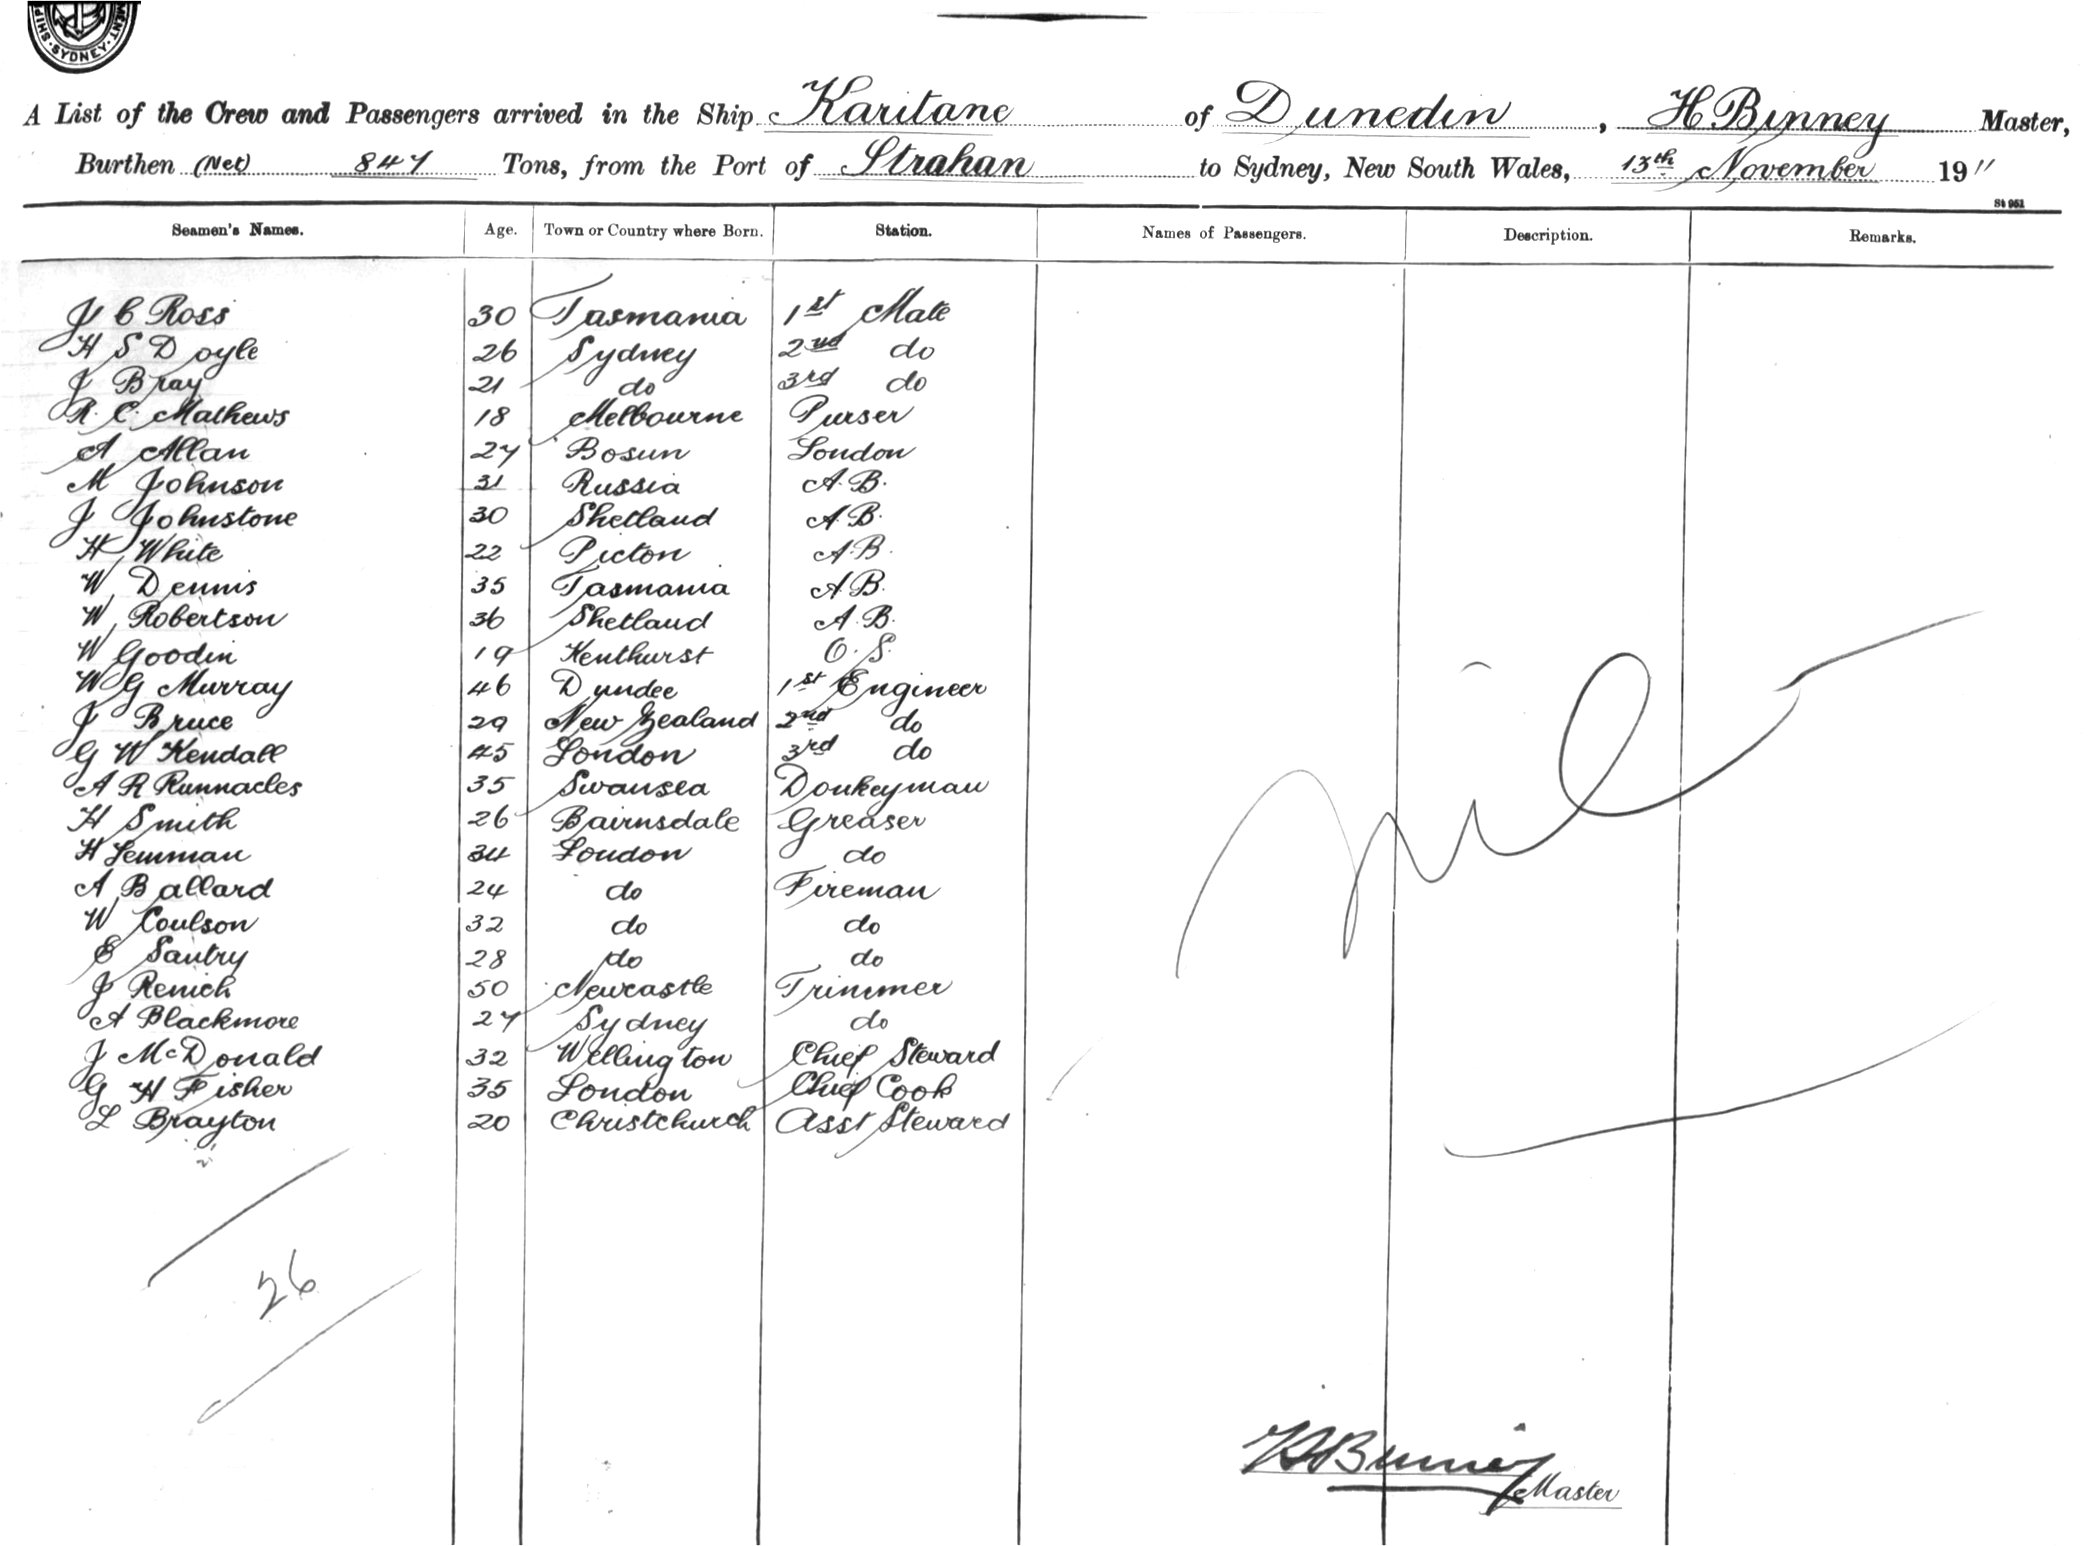 SHIP · SYDNEY · MENT
A List of the Crew and Passengers arrived in the Ship Karitane of Dunedin, H Binney Master,
Burthen (Net) 847 Tons, from the Port of Strahan to Sydney, New South Wales, 13th November 1911
St 951
Seamen's Names. Age. Town or Country where Born. Station. Names of Passengers. Description. Remarks.
J C Ross 30 Tasmania 1st Mate
H S Doyle 26 Sydney 2nd do
J Bray 21 do 3rd do
R. C. Mathews 18 Melbourne Purser
A Allan 27 Bosun London
M Johnson 31 Russia A.B.
J Johnstone 30 Shetland A.B.
H White 22 Picton A.B.
W Dennis 35 Tasmania A.B.
W Robertson 36 Shetland A.B.
W Goodin 19 Kenthurst O.S.
W G Murray 46 Dundee 1st Engineer
J Bruce 29 New Zealand 2nd do
G W Kendall 45 London 3rd do
A R Runnacles 35 Swansea Donkeyman
H Smith 26 Bairnsdale Greaser
H Lemman 34 London do
A Ballard 24 do Fireman
W Coulson 32 do do
E Santry 28 do do
J Renich 50 Newcastle Trimmer
A Blackmore 27 Sydney do
J McDonald 32 Wellington Chief Steward
G H Fisher 35 London Chief Cook
L Brayton 20 Christchurch Asst Steward
nil
26
H Binney
Master